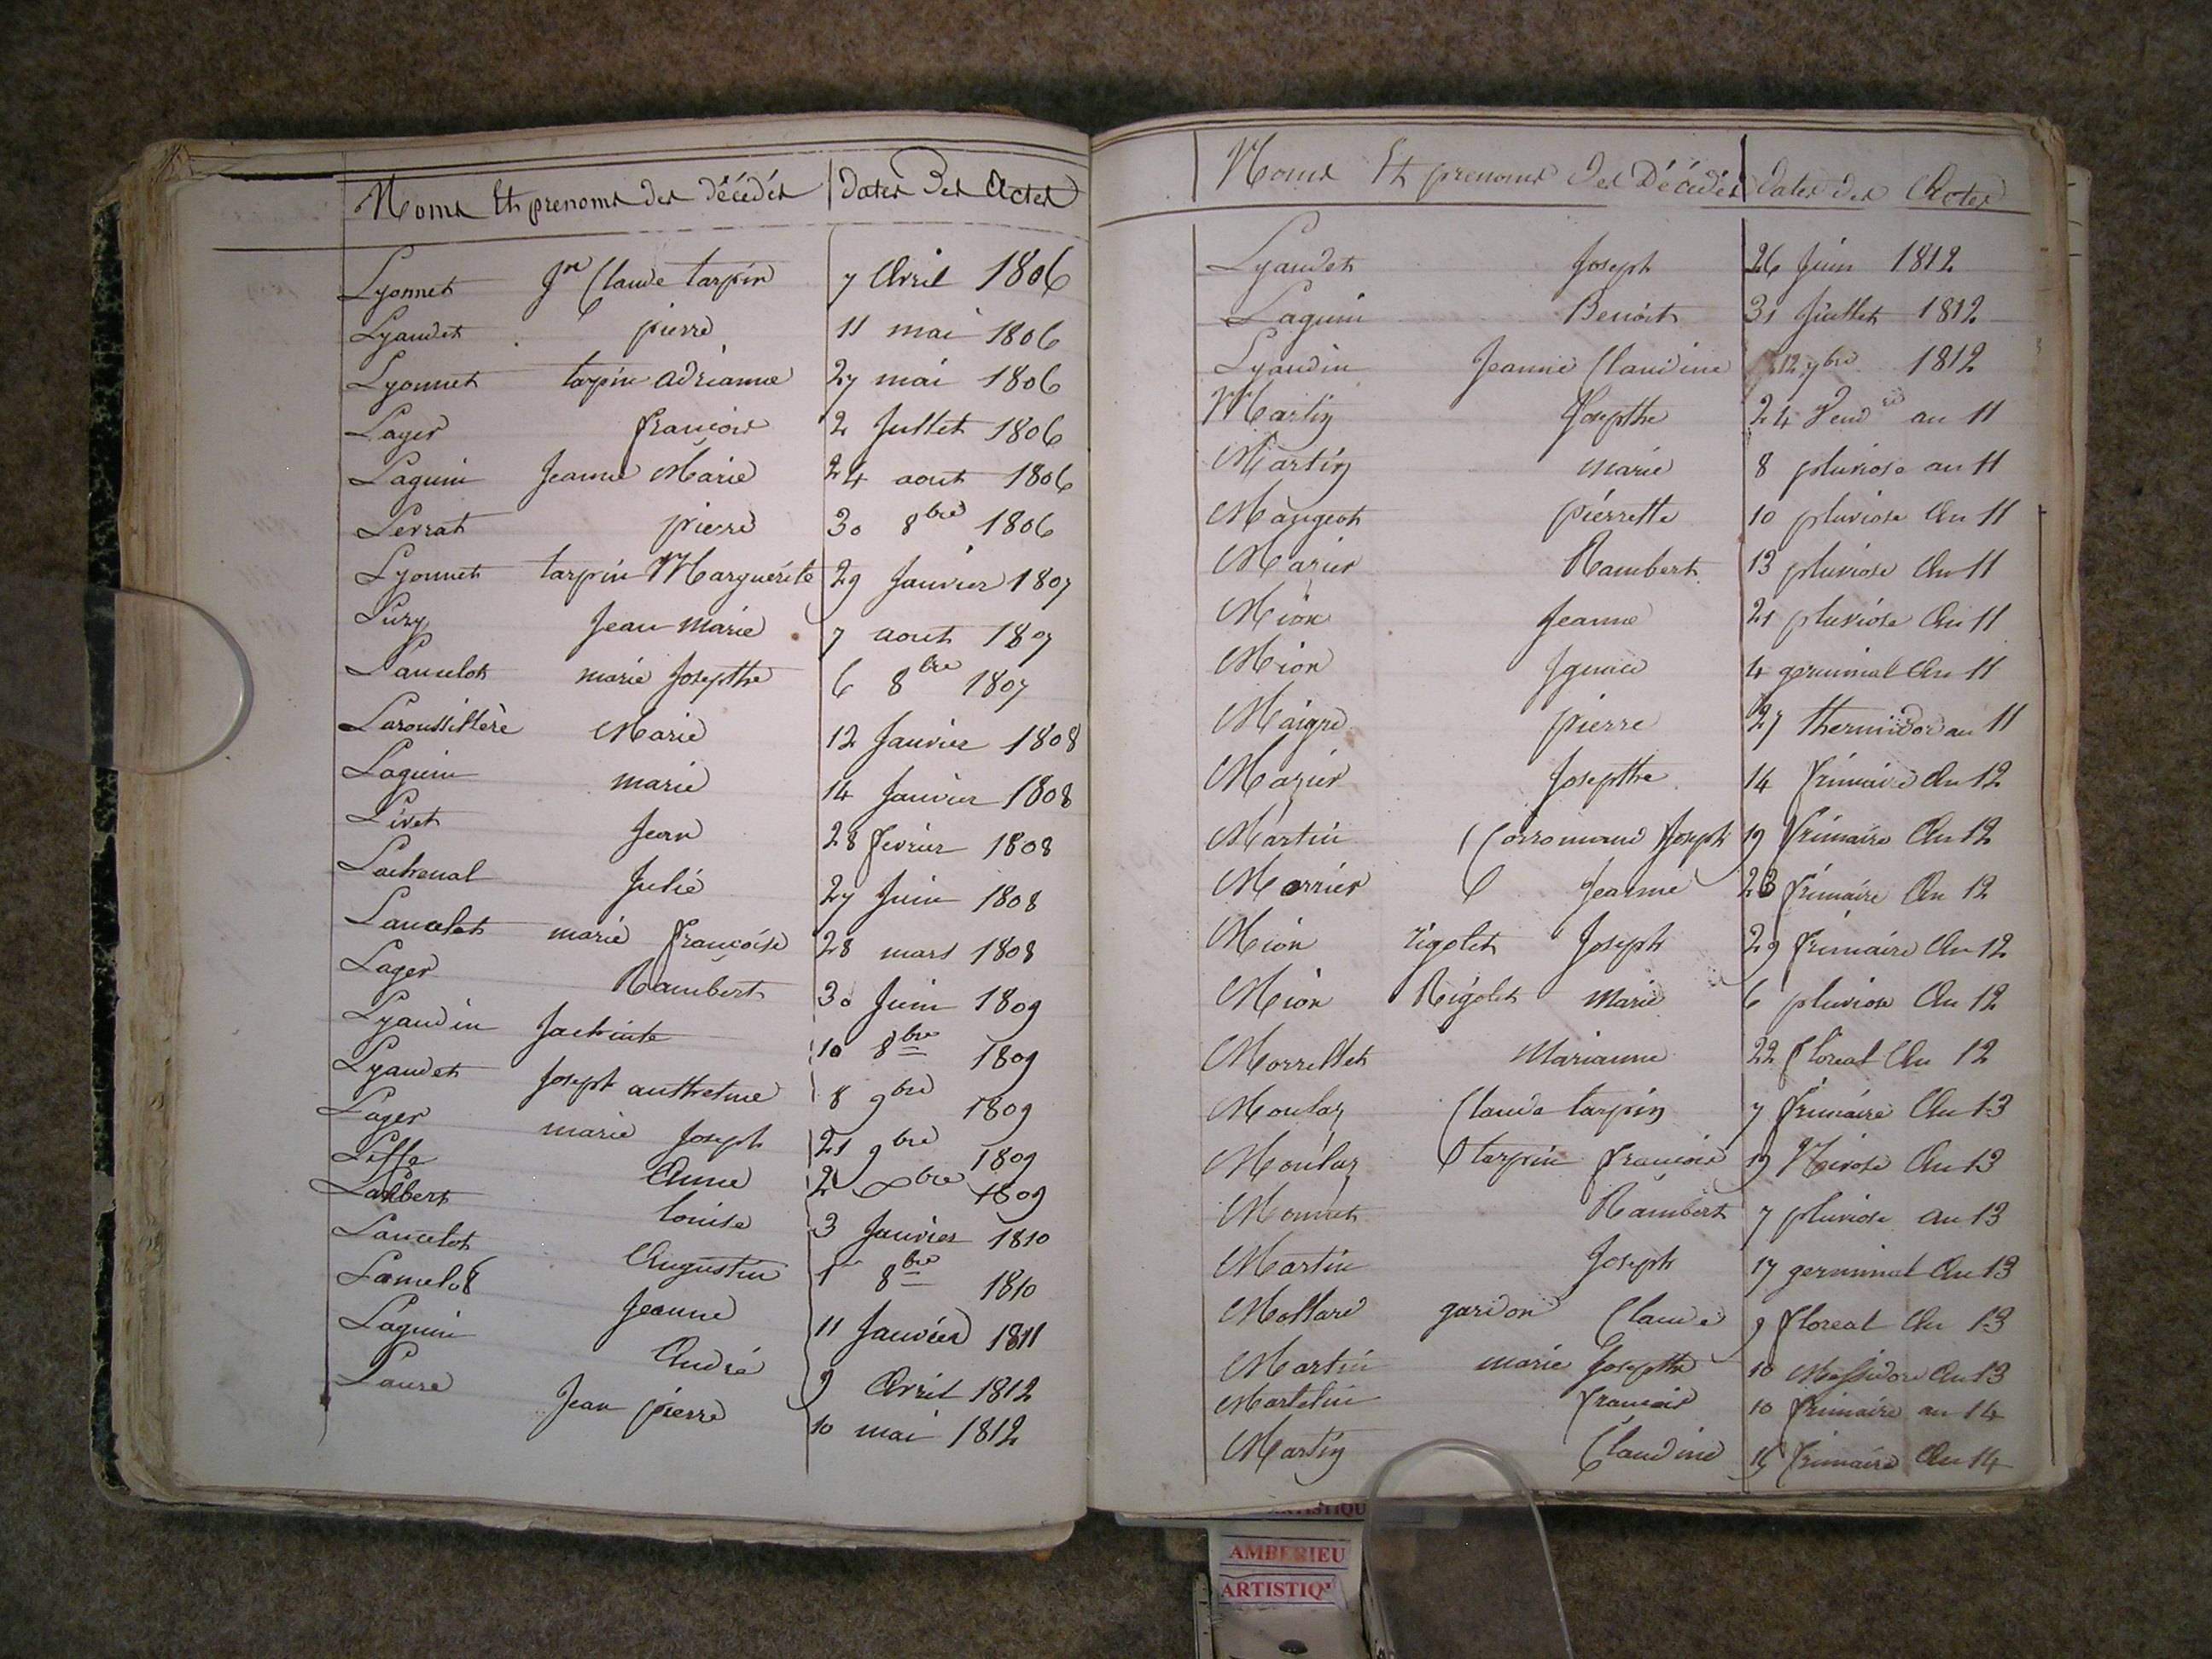 Noms Et prenoms des décédés dates des Actes
Lyonnet Jn Claude tarpin 7 Avril 1806
Lyaudet pierre 11 mai 1806
Lyonnet tarpin adrianne 27 mai 1806
Lager françois 2 Jullet 1806
Laguin Jeanne Marie 24 aout 1806
Levrat pierre 30 8bre 1806
Lyonnet tarpin Marguerite 29 Janvier 1807
Luzy Jean marie 7 aout 1807
Lancelot marie Josepthe 6 8bre 1807
Laroussillère Marie 12 Janvier 1808
Laguin marie 14 Janvier 1808
Livet Jean 28 fevrier 1808
Lachenal Julie 27 Juin 1808
Lancelot marie françoise 28 mars 1808
Lager Rambert 30 Juin 1809
Lyaudin Jachinte 10 8bre 1809
Lyaudet Joseph anthelme 8 9bre 1809
Lager marie Joseph 21 9bre 1809
Liffe Anne 2 bre 1809
Louise 3 Janvier 1810
Lancelot Augustin 1er 8bre 1810
Jeanne 11 Janvier 1811
Laguin André 9 Avril 1812
Laure Jean pierre 10 mai 1812
Noms Et prenoms des Décédés dates des Actes
Lyaudet Joseph 26 Juin 1812
Laguin Benoit 31 Juillet 1812
Lyaudin Jeanne Claudine 12 9bre 1812
Martin Josepthe 24 Vend re an 11
Martin marie 8 pluviose an 11
Mangeot pierrette 10 pluviose An 11
Mazier Rambert 13 pluviose An 11
Mion Jeanne 21 pluviose An 11
Mion Ignace 4 germinal An 11
Maigre pierre 27 thermidor an 11
Mazier Josepthe 14 frimaire An 12
Martin Corromand Joseph 19 frimaire An 12
Morrier Jeanne 23 frimaire An 12
Mion rigolet Joseph 29 frimaire An 12
Mion Rigolet Marie 6 pluviose An 12
Morrellet Marianne 22 floreal An 12
Moulaz Claude tarpin 7 frimaire An 13
Moulaz tarpin françois 19 Nivose An 13
Monnet Rambert 7 pluviose an 13
Martin Joseph 17 germinal An 13
Mollard gardon Claude 9 floreal An 13
Martin marie Josepthe 10 Messidore An 13
Martelin francois 10 frimaire an 14
Martin Claudine frimaire An 14
ARTISTIQU
AMBERIEU
ARTISTIQ